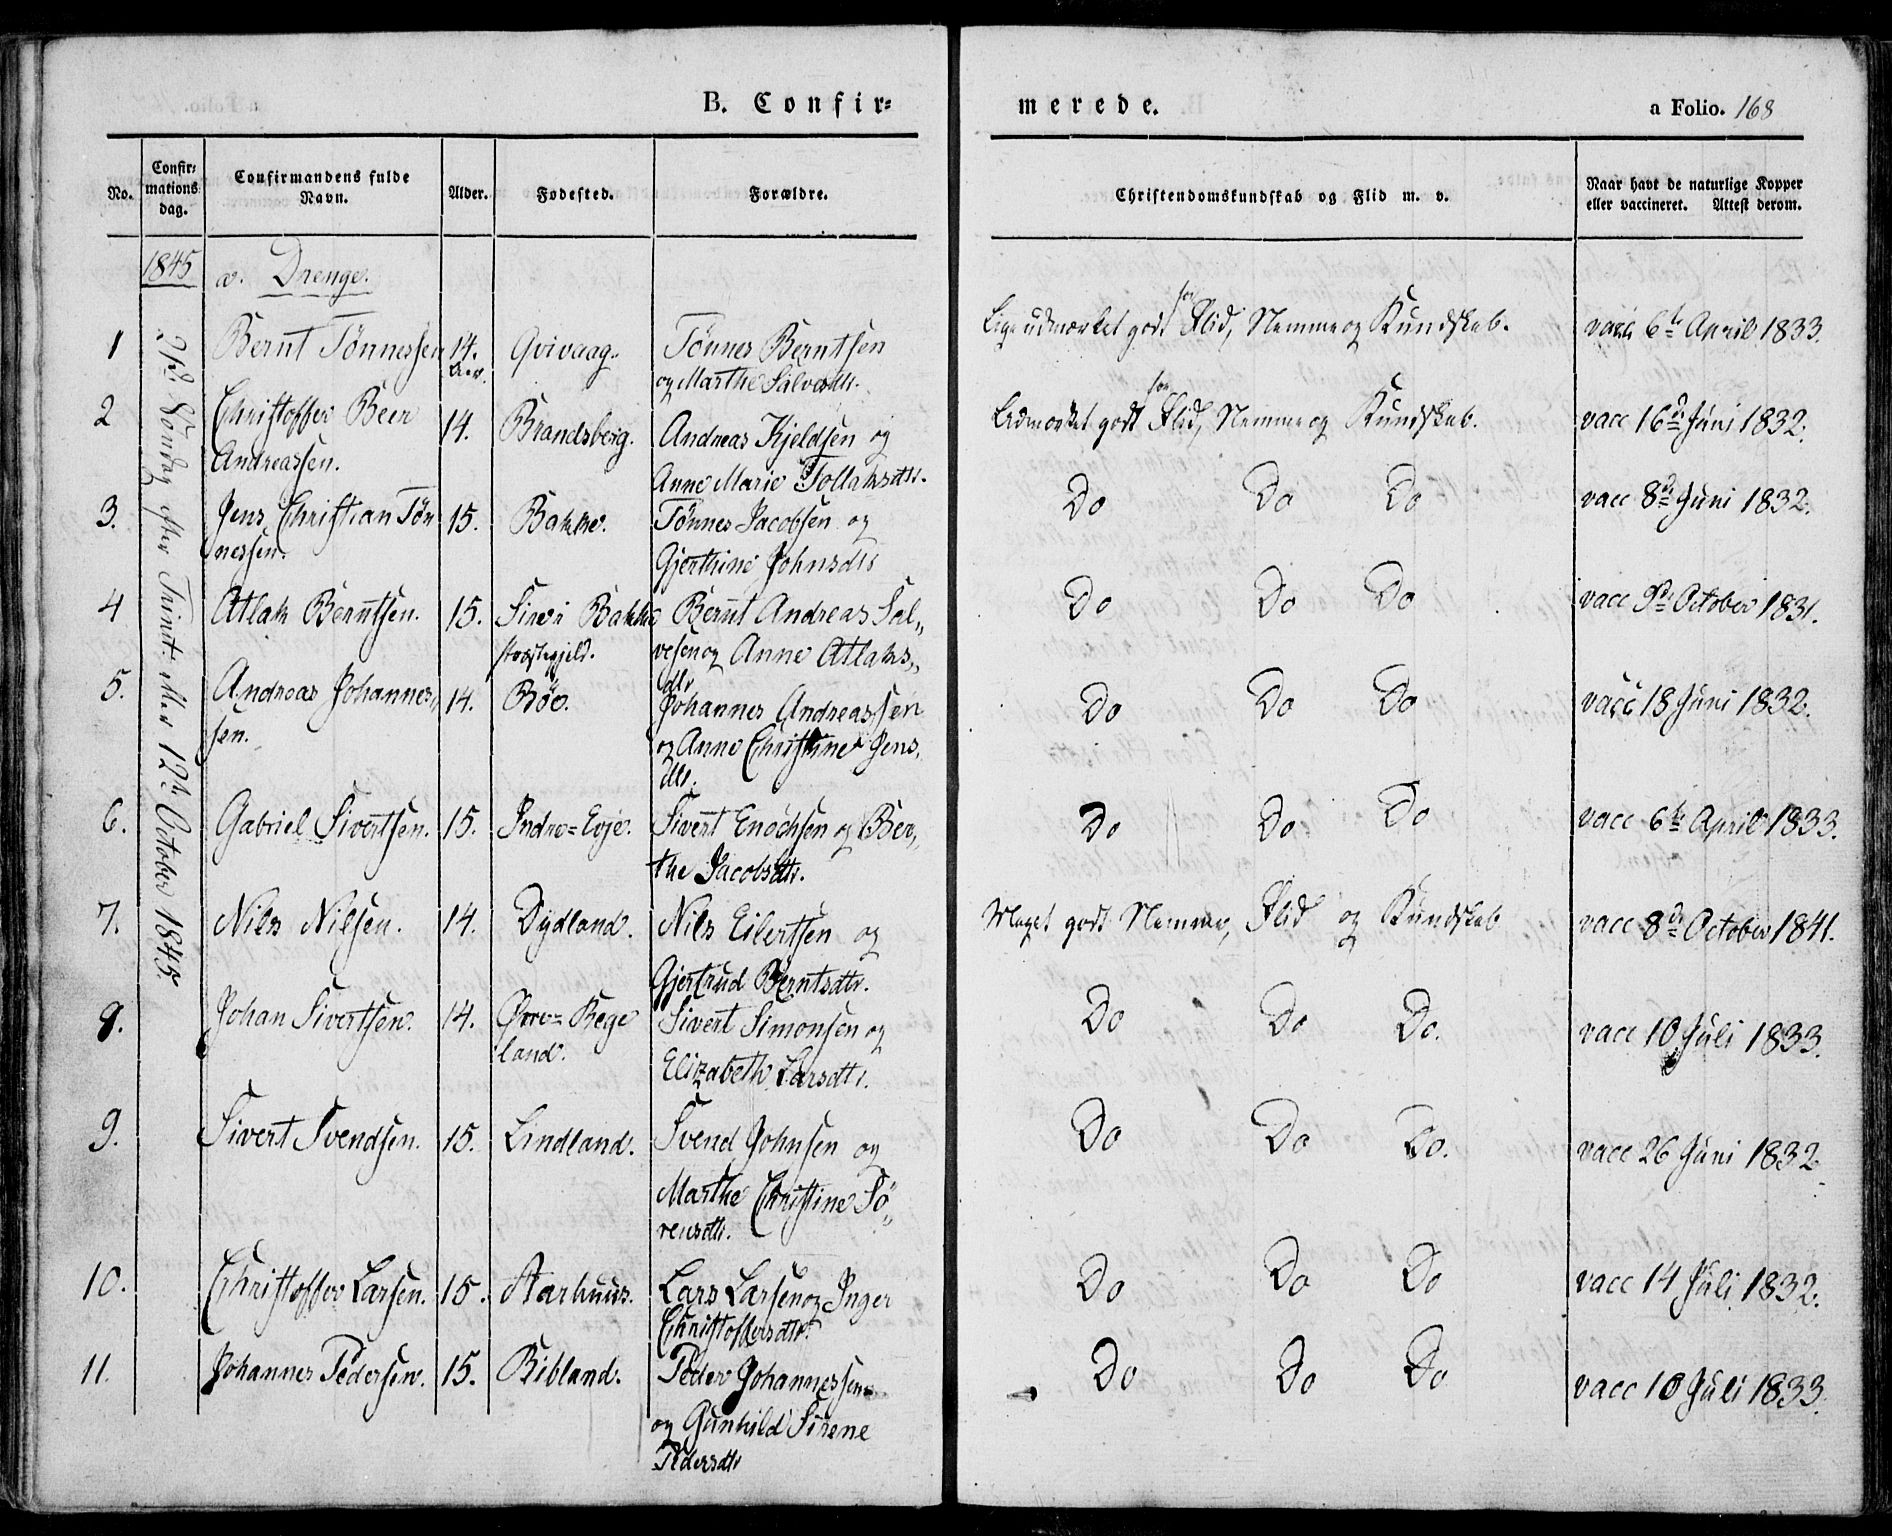 B. Confir=
merede.
a Folio. 168
No.
Confir=
mations
dag.
Confirmandens fulde
Navn.
Alder.
Fødested.
Forældre.
Christendomskundskab og Flid m. v.
Naar havt de naturlige Kopper
eller vaccineret. Attest derom.
1845
a. Drenge.
21de Søndag efter Trinit: eller 12te October 1845
1 Bernt Tønnessen 14. Qvivaag. Tønnes Berntsen
og Marthe Salvesdtr.
Lige udmærket godt for Flid, Nemme og Kundskab. vacc 6te April 1833.
2 Christoffer Beer 14. Brandsberg. Andreas Kjeldsen og
Andreassen. Anne Marie Tollaksdtr.
Udmærket godt for Flid, Nemme og Kundskab. vacc 16de Juni 1832.
3. Jens Christian Tøn 15. Bakke. Tønnes Jacobsen og
nessen. Gjerthine Johnsdtr
Do Do Do vacc 8de Juni 1832.
4 Atlak Berntsen. 15. Sirei Bakke Bernt Andreas Sal„
Præstegjeld. vesen og Anne Atlaks„
dtr
Do Do Do vacc 9de October 1831.
5. Andreas Johannes„ 14. Bøe. Johannes Andreassen
sen. og Anne Christine Jens
dtr.
Do Do Do vacc 18 Juni 1832.
6. Gabriel Sivertsen. 15. Indre=Evje. Sivert Enochsen og Ber„
the Jacobsdtr.
Do Do Do vacc 6te April 1833.
7. Nils Nilsen. 14. Dydland. Nils Eilertsen og
Gjertrud Berntsdtr.
Meget godt Nemme, Flid og Kundskab vacc 8de October 1841.
8. Johan Sivertsen. 14. Øvre=Rege Sivert Simonsen og
land. Elizabeth Larsdtr.
Do Do Do. vacc 10 Juli 1833.
9. Sivert Svendsen. 15. Lindland. Svend Johnsen og
Marthe Christine Sø„
rensdtr.
Do Do Do. vacc 26 Juni 1832
10. Christoffer Larsen. 15. Aarhuus. Lars Larsen og Inger
Christoffersdtr.
Do Do Do vacc 14 Juli 1832.
11. Johannes Pedersen. 15. Bibland. Peder Johannessen
og Gunhild Sirene
Pedersdtr
Do Do Do vacc 10 Juli 1833.